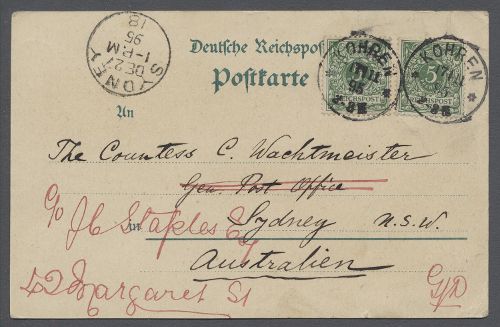 SYDNEY
DE 27
1-PM
95
18
Deutsche Reichspost
Postkarte
KOHREN
95
REICHSPOST
KOHREN
5
REICHSPOST
An
The Countess C. Wachtmeister
Gen. Post Office
c/o J C Staples Esq
Sydney N.S.W.
in
Australien
42 Margaret St